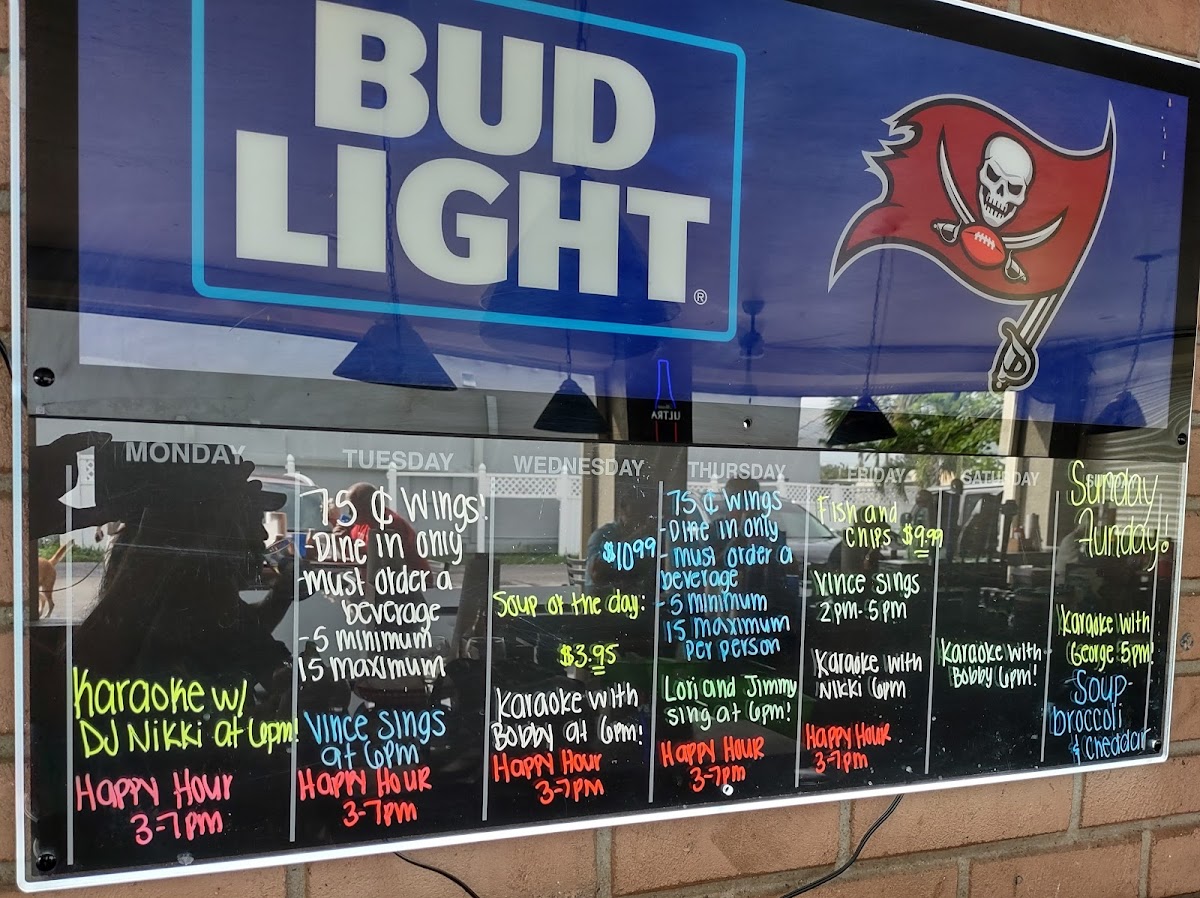 BUD
LIGHT®
ULTRA
MONDAY
Karaoke w/
DJ Nikki at 6pm!
Happy Hour
3-7pm
TUESDAY
75 ¢ Wings!
-Dine in only
-must order a
beverage
-5 minimum
15 maximum
Vince Sings
at 6pm
Happy Hour
3-7pm
WEDNESDAY
$10.99
Soup of the day:
$3.95
Karaoke with
Bobby at 6pm!
Happy Hour
3-7pm
THURSDAY
75 ¢ Wings
-Dine in only
-must order a
beverage
-5 minimum
15 maximum
per person
Lori and Jimmy
sing at 6pm!
Happy Hour
3-7pm
FRIDAY
Fish and
Chips $9.99
Vince Sings
2pm-5pm
Karaoke with
Nikki 6pm
Happy Hour
3-7pm
SATURDAY
Karaoke with
Bobby 6pm!
Sunday
Funday!
Karaoke with
George 5pm!
Soup-
broccoli
& Cheddar